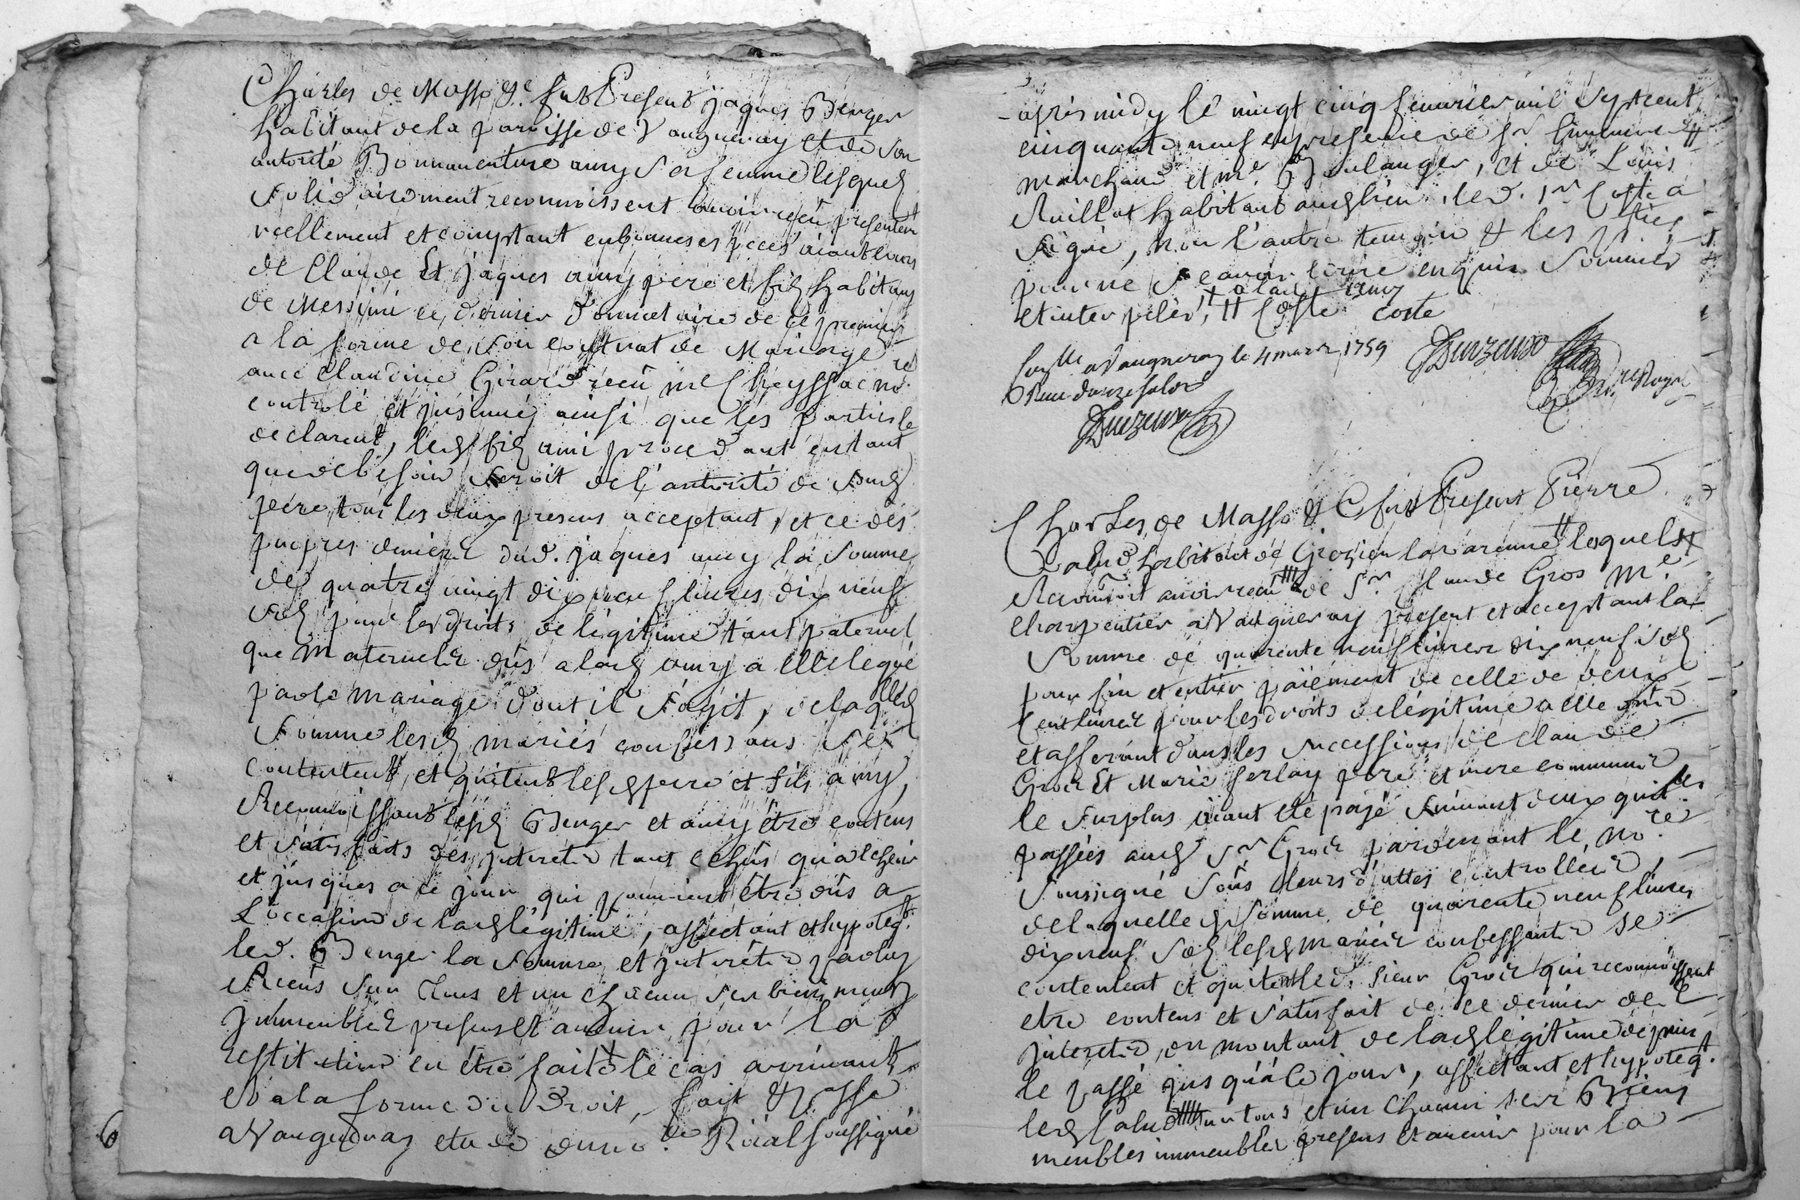 Charles de Masso &c. fut Présent jaques Berger
habitant de la paroisse de Vaugneray et de son
autorité Bonnaventure amy sa femme lesquels
solidairement reconnoissent avoir reçu presentemt
reellement et comptant en bonnes espèces aiant cours
de Claude Et jaques amy pere et fils habitans
de Messimi ce dernier donnataire de ce premier
a la forme de son contrat de Mariage
avec Claudine Girard reçu me Cheyssac nore
controlé et insinué ainsi que les parties le
declarent, led fils ami procedant entant
que de besoin seroit de l'autorité de sond
pere, tous les deux presens acceptant, et ce des
propres deniers dud. jaques amy la somme
de quatre vingt dix neuf livres dix neuf
sols pour les droits de legitime tant paternel
que maternels dûs a lad amy a Elle legué
par le mariage dont il s'agit, de laqlle
somme lesd mariés confessans se
contentent et quitent lesd pere et fils amy,
Reconnoissant lesd Berger et amy être contens
et satisfaits des interets tant echus qu'a echeoir
et jusques a ce jour qui pourroient être dûs a
L'occasion de lad légitime, affectant et hypoteqt
led. Berger la somme et interets par luy
Recûs sur tous et un chacun ses biens meubs
jmmeubles presens et avenir pour la
restitution en être faite le cas arrivant
et a la forme du Droit, fait & passé
a Vaugneray etude du nore Roïal soussigné
6
après midy le vingt cinq fevrier mil sept cent
cinquante neuf en presence de sr
marchand et me Boulanger, et de Louis
Ruillat habitant aud lieu, led. sr Coste a
signé, non l'autre temoin & les parties
pour ne sçavoir écrire enquis sommés
et interpelés, Coste coste
a Vaugneray le 4 mars 1759
nore Royal
Charles de Masso & C fut Present Pierre
habitant de Grezieu la varenne lequel
Reconnoit avoir reçu de Sr Claude Gros me
charpentier a Vaugneray present et acceptant la
somme de quarente neuf livres dix neuf sols
pour fin et entier païement de celle de deux
Cent livres pour les droits de légitime a elle
et afferant dans les successions de Claude
Gros Et Marie ferlay pere et mere communs
le surplus aiant été payé suivant deux quitces
passées aud Sr Gros pardevant le nore
soussigné sous leurs dattes controllées,
de laquelle somme de quarente neuf livres
dix neuf sols lesd mariés confessant se
contentent et quitent led. sieur Gros qui reconnoissent
etre contens et satisfait de ce dernier de
Interets, du montant de lad légitime depuis
le passé jusqu'à ce jour, affectant et hypoteqt
led sur tous et un chacun ses Biens
meubles immeubles presens et avenir pour la